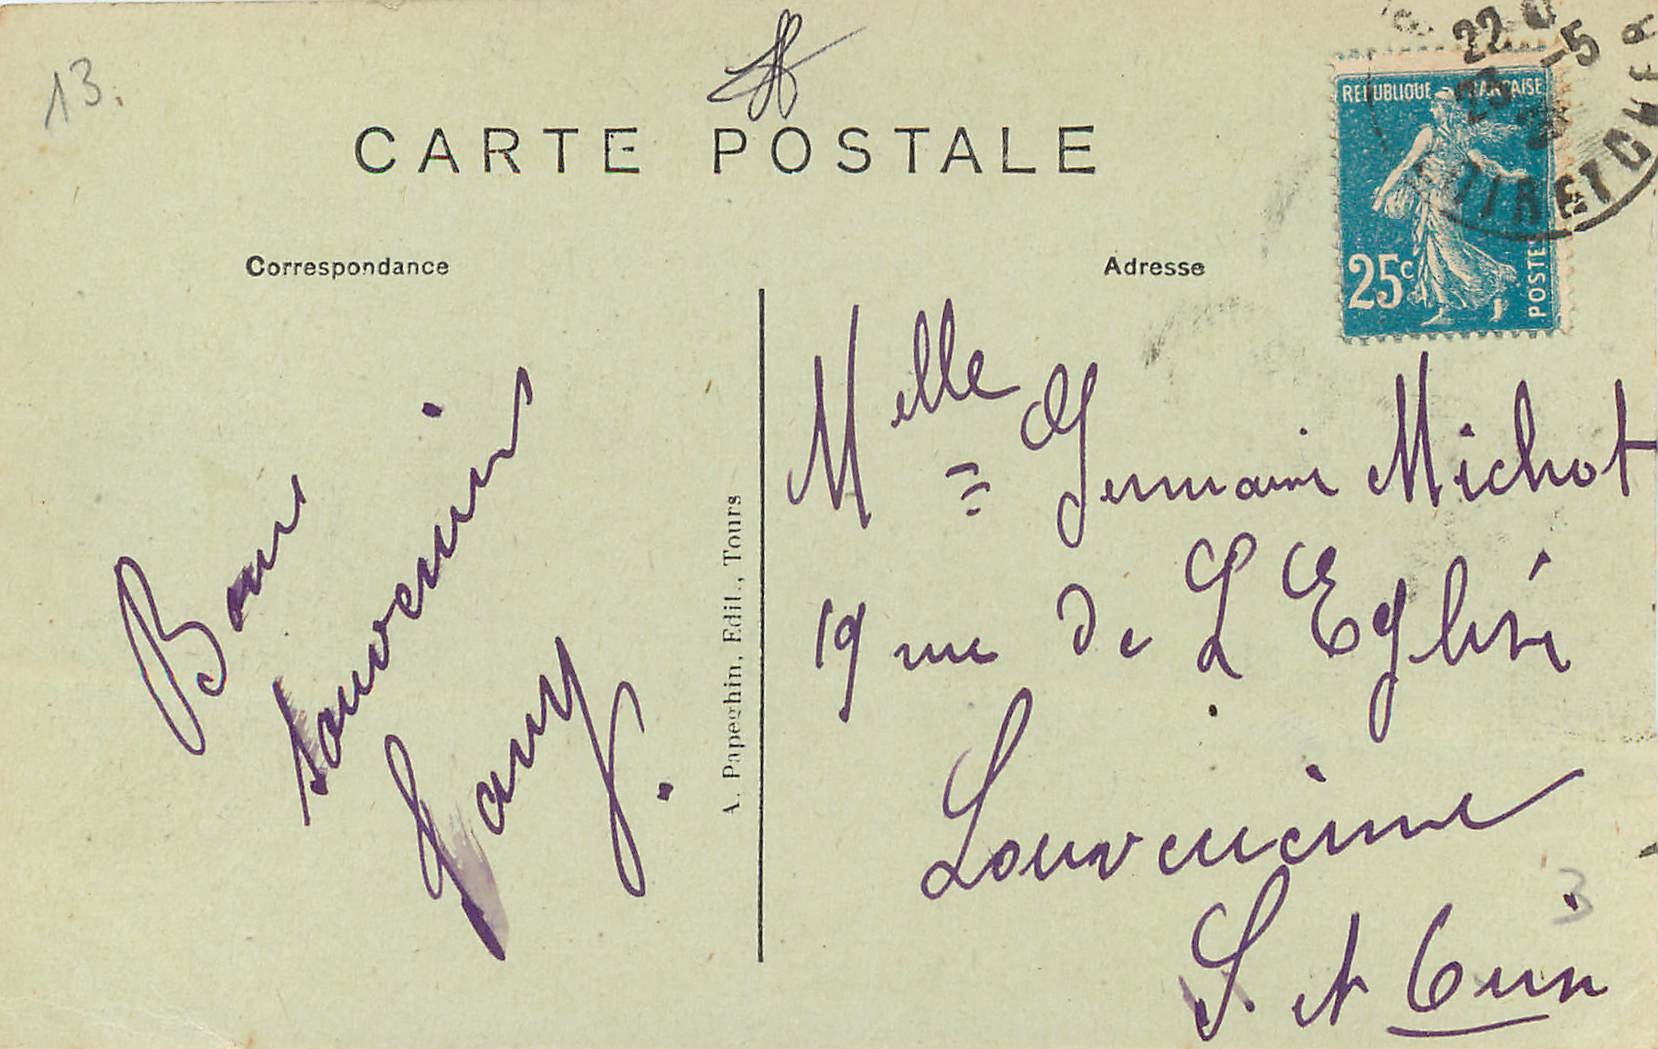 13.
CARTE POSTALE
Correspondance
Adresse
REPUBLIQUE FRANÇAISE
25c
POSTES
22
23 -5
ET CHER
Bons
souvenirs
A. Papeghin, Edit., Tours
Melle Germaine Michot
19 rue de L'Eglise
Louveciennes
S. et Oise
3